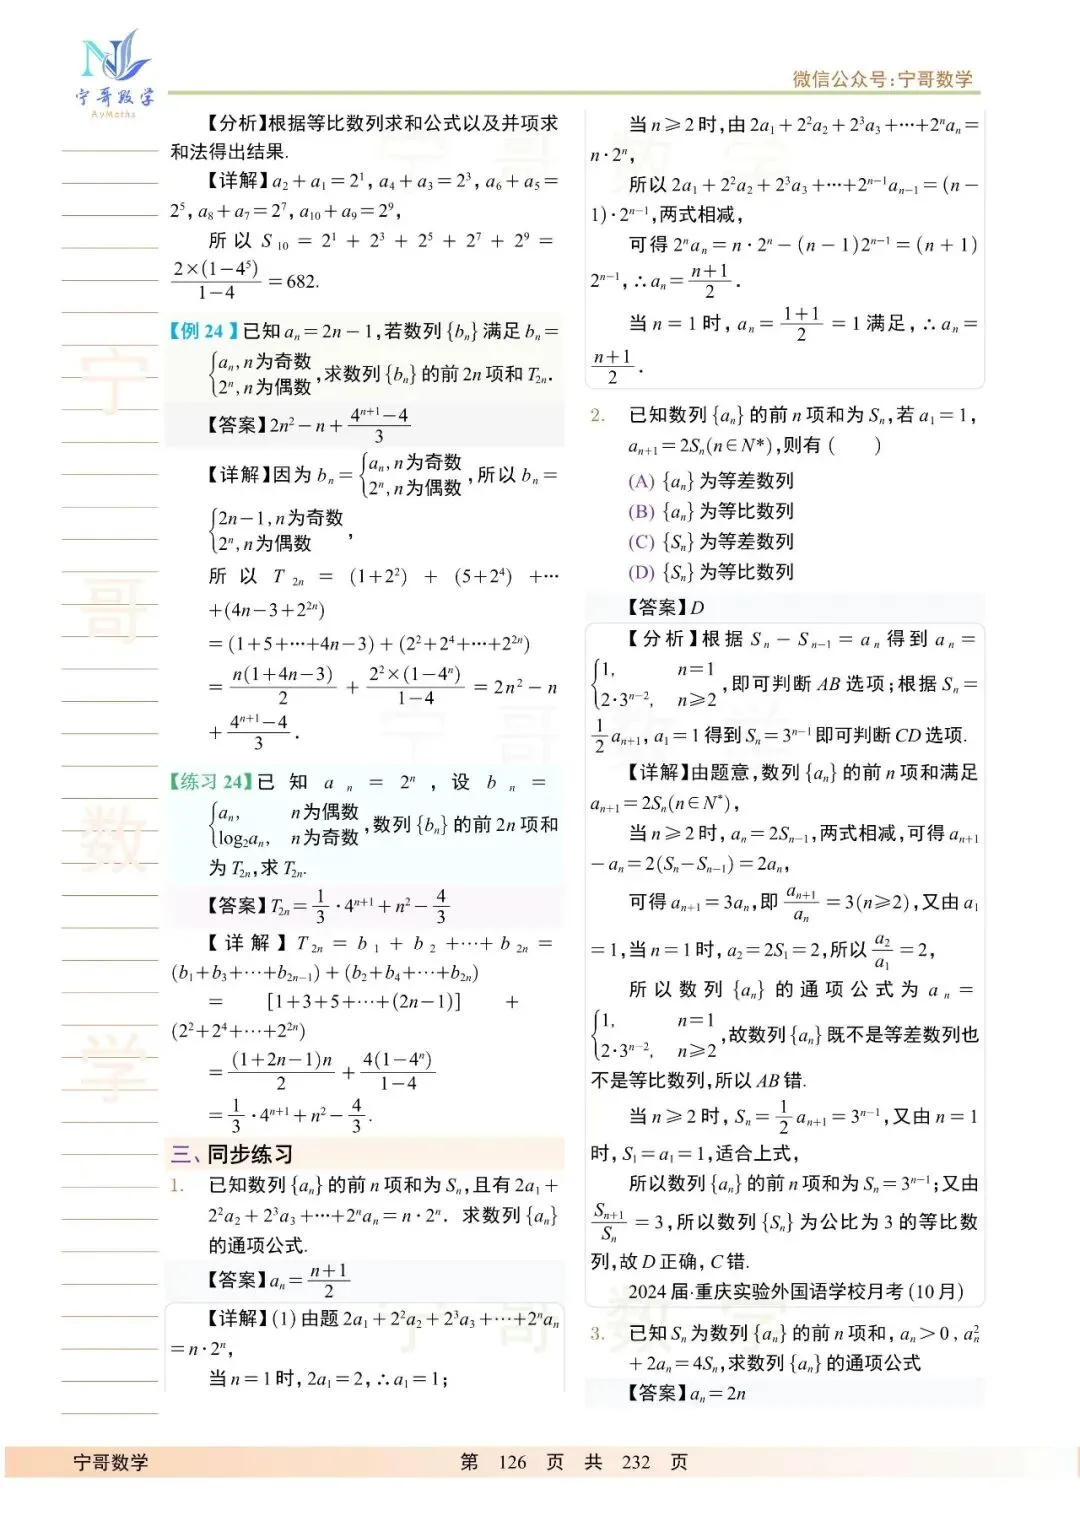 宁哥数学
AyMaths
微信公众号:宁哥数学
【分析】根据等比数列求和公式以及并项求
和法得出结果.
【详解】a₂+a₁=2¹, a₄+a₃=2³, a₆+a₅=
2⁵, a₈+a₇=2⁷, a₁₀+a₉=2⁹,
所以 S₁₀ = 2¹ + 2³ + 2⁵ + 2⁷ + 2⁹ =
2×(1−4⁵)/(1−4) =682.
【例 24】已知 aₙ=2n−1,若数列{bₙ}满足 bₙ=
{aₙ, n为奇数
2ⁿ, n为偶数 ,求数列{bₙ}的前2n项和T₂ₙ.
【答案】2n²−n+(4ⁿ⁺¹−4)/3
【详解】因为 bₙ={aₙ, n为奇数
2ⁿ, n为偶数 ,所以 bₙ=
{2n−1, n为奇数
2ⁿ, n为偶数 ,
所以 T₂ₙ = (1+2²) + (5+2⁴) +···
+(4n−3+2²ⁿ)
=(1+5+···+4n−3)+(2²+2⁴+···+2²ⁿ)
= n(1+4n−3)/2 + 2²×(1−4ⁿ)/(1−4) = 2n²−n
+ (4ⁿ⁺¹−4)/3 .
【练习 24】已知 aₙ = 2ⁿ , 设 bₙ =
{aₙ, n为偶数
log₂aₙ, n为奇数 ,数列{bₙ}的前2n项和
为T₂ₙ,求T₂ₙ.
【答案】T₂ₙ= 1/3 ·4ⁿ⁺¹+n²− 4/3
【详解】T₂ₙ = b₁ + b₂ +···+ b₂ₙ =
(b₁+b₃+···+b₂ₙ₋₁)+(b₂+b₄+···+b₂ₙ)
= [1+3+5+···+(2n−1)] +
(2²+2⁴+···+2²ⁿ)
= (1+2n−1)n/2 + 4(1−4ⁿ)/(1−4)
= 1/3 ·4ⁿ⁺¹+n²− 4/3 .
三、同步练习
1. 已知数列{aₙ}的前n项和为Sₙ,且有2a₁+
2²a₂+2³a₃+···+2ⁿaₙ=n·2ⁿ. 求数列{aₙ}
的通项公式.
【答案】aₙ= (n+1)/2
【详解】(1)由题2a₁+2²a₂+2³a₃+···+2ⁿaₙ
=n·2ⁿ,
当n=1时, 2a₁=2, ∴a₁=1;
当n⩾2时,由2a₁+2²a₂+2³a₃+···+2ⁿaₙ=
n·2ⁿ,
所以2a₁+2²a₂+2³a₃+···+2ⁿ⁻¹aₙ₋₁=(n−
1)·2ⁿ⁻¹,两式相减,
可得2ⁿaₙ=n·2ⁿ−(n−1)2ⁿ⁻¹=(n+1)
2ⁿ⁻¹, ∴aₙ= (n+1)/2 .
当n=1时, aₙ= (1+1)/2 =1满足, ∴aₙ=
(n+1)/2 .
2. 已知数列{aₙ}的前n项和为Sₙ,若a₁=1,
aₙ₊₁=2Sₙ(n∈N*),则有 ( )
(A) {aₙ}为等差数列
(B) {aₙ}为等比数列
(C) {Sₙ}为等差数列
(D) {Sₙ}为等比数列
【答案】D
【分析】根据 Sₙ − Sₙ₋₁ = aₙ 得到 aₙ =
{1, n=1
2·3ⁿ⁻², n⩾2 ,即可判断AB选项;根据Sₙ=
1/2 aₙ₊₁, a₁=1得到Sₙ=3ⁿ⁻¹即可判断CD选项.
【详解】由题意,数列{aₙ}的前n项和满足
aₙ₊₁=2Sₙ(n∈N*),
当n⩾2时, aₙ=2Sₙ₋₁,两式相减,可得aₙ₊₁
−aₙ=2(Sₙ−Sₙ₋₁)=2aₙ,
可得aₙ₊₁=3aₙ,即 aₙ₊₁/aₙ =3(n⩾2),又由a₁
=1,当n=1时, a₂=2S₁=2,所以 a₂/a₁ =2,
所以数列{aₙ}的通项公式为 aₙ =
{1, n=1
2·3ⁿ⁻², n⩾2 ,故数列{aₙ}既不是等差数列也
不是等比数列,所以AB错.
当n⩾2时, Sₙ= 1/2 aₙ₊₁=3ⁿ⁻¹,又由n=1
时, S₁=a₁=1,适合上式,
所以数列{aₙ}的前n项和为Sₙ=3ⁿ⁻¹;又由
Sₙ₊₁/Sₙ =3,所以数列{Sₙ}为公比为3的等比数
列,故D正确, C错.
2024届·重庆实验外国语学校月考(10月)
3. 已知Sₙ为数列{aₙ}的前n项和, aₙ>0, aₙ²
+2aₙ=4Sₙ,求数列{aₙ}的通项公式
【答案】aₙ=2n
宁哥数学
第 126 页 共 232 页